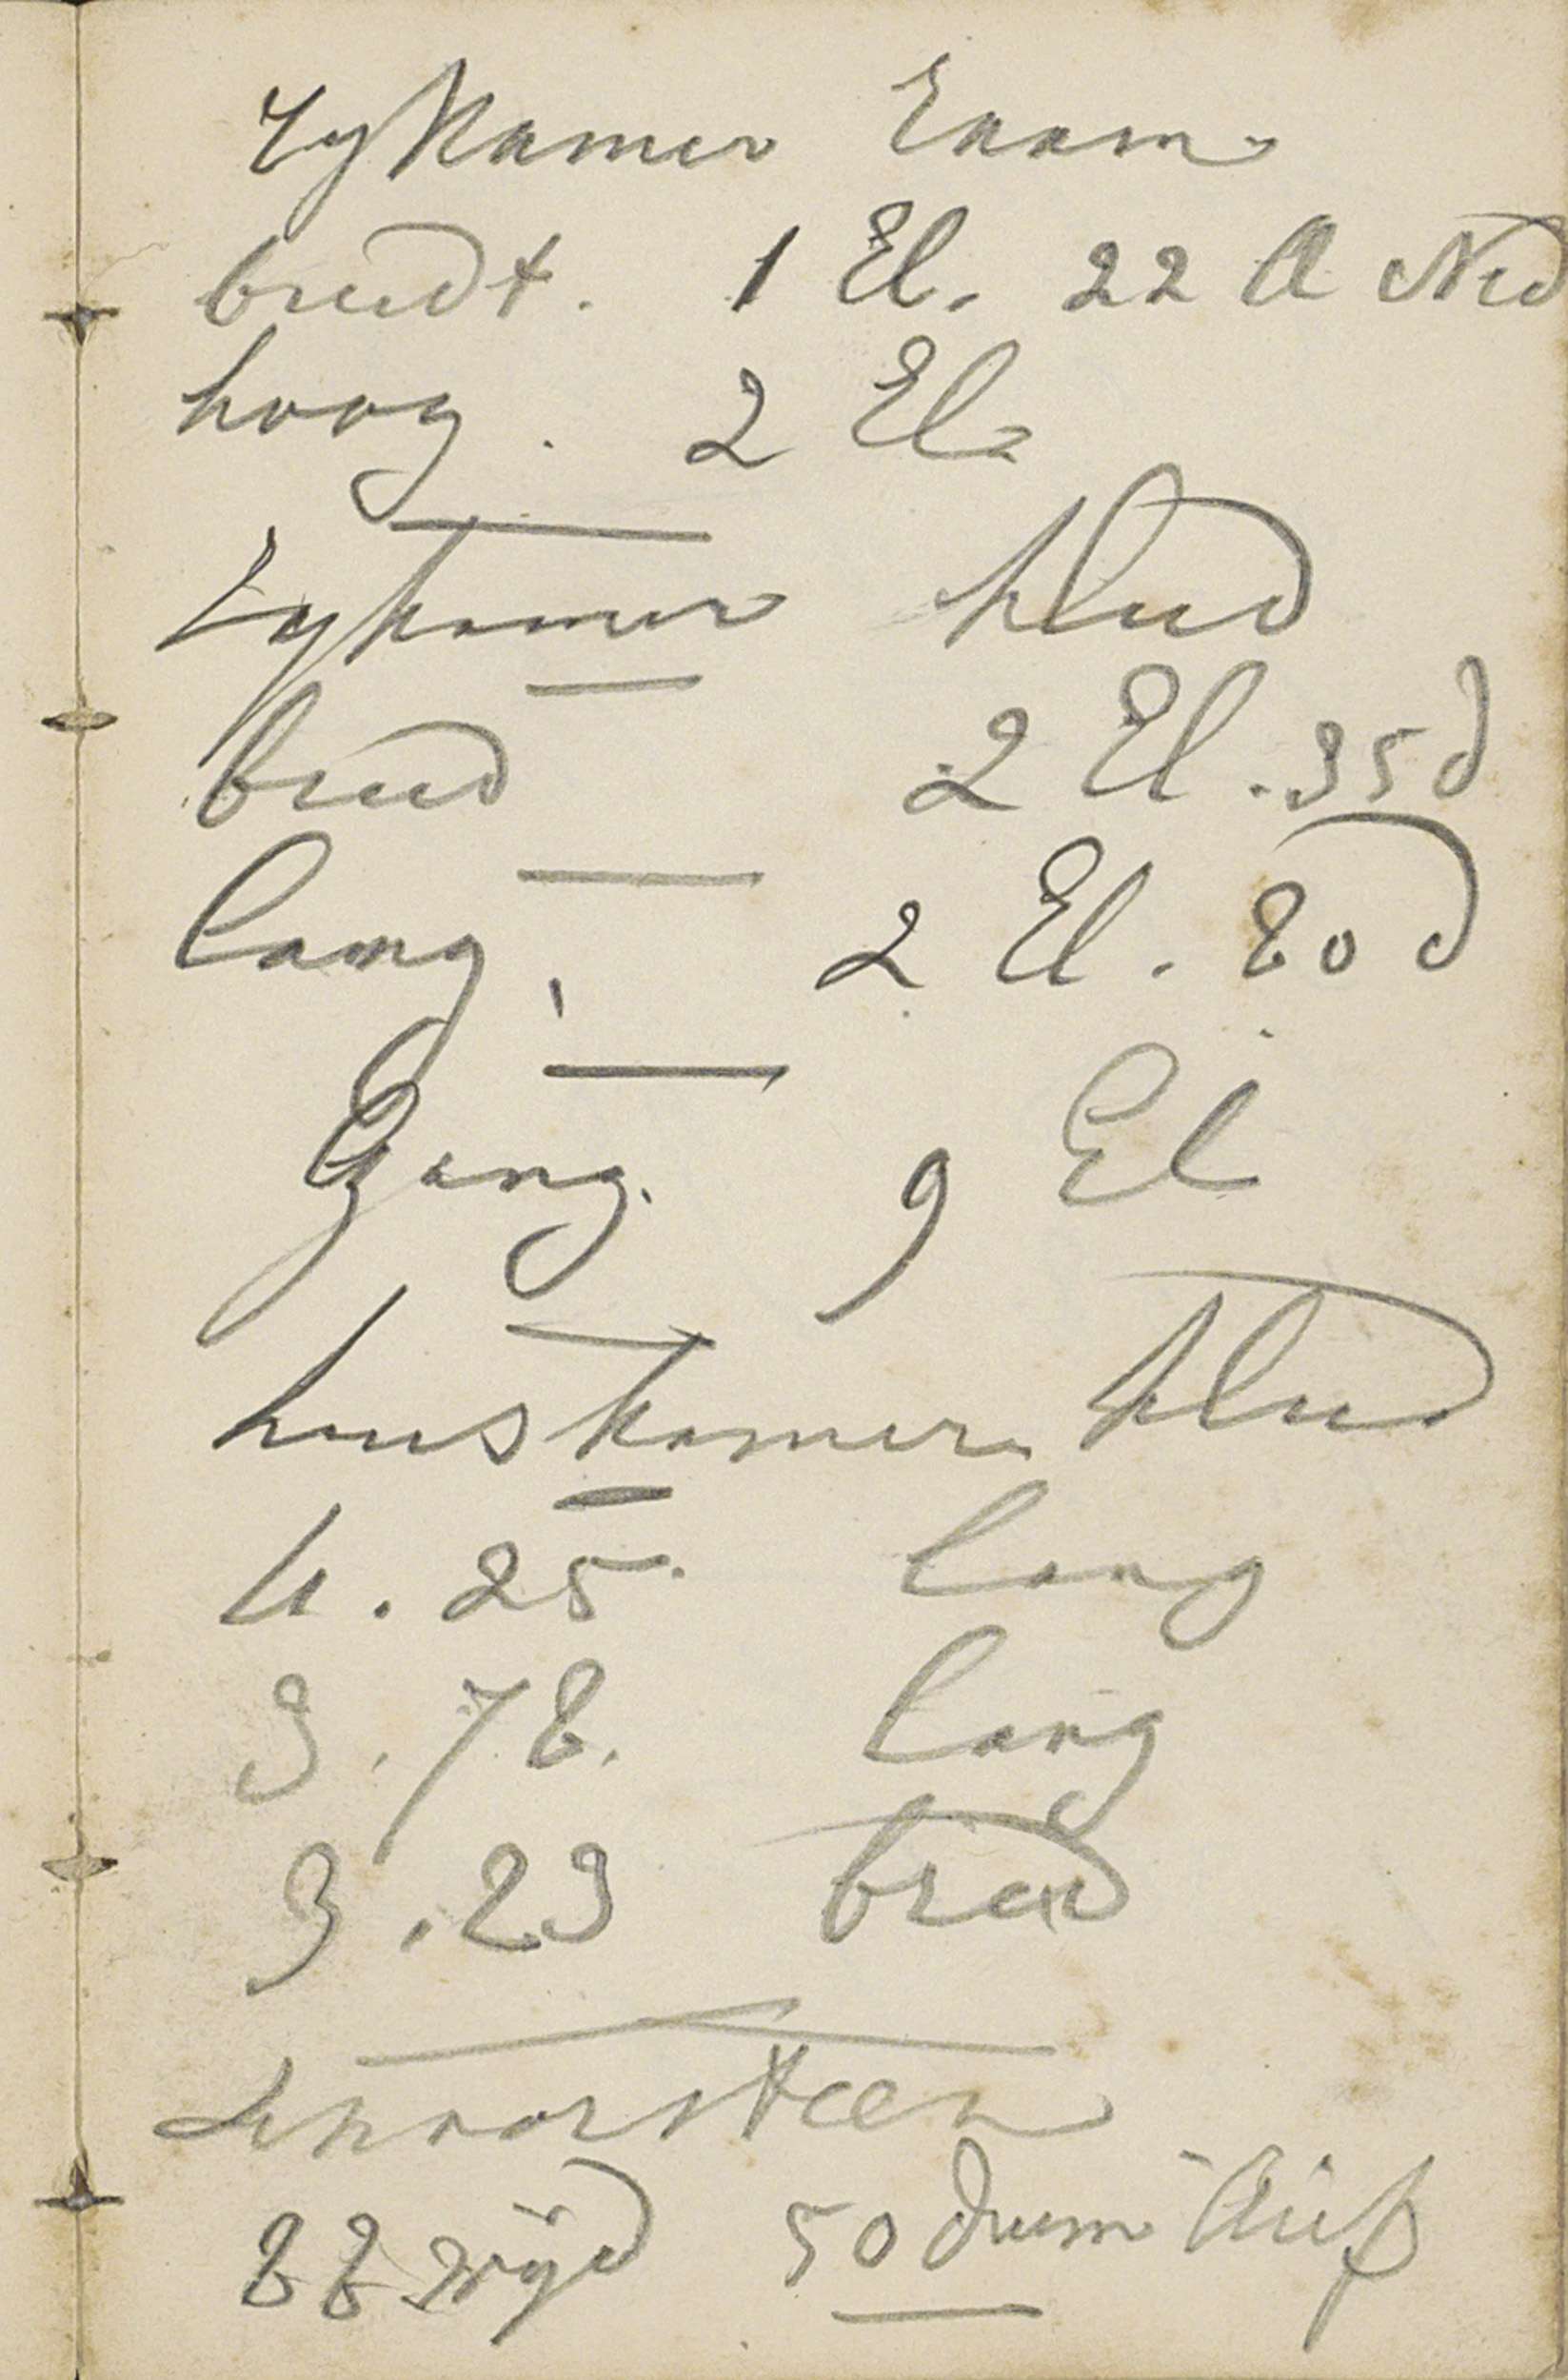 Zykamer Eaam
breedt. 1 El. 22 d Ned
hoog. 2 El.
Zykamer kleed
breed 2 El. 35 d
lang, 2 El. 80 d
Gang. 9 El
huiskamer kleed
4.25 lang
3.78. lang
3.23 breed
schoorsteen
88 wijd 50 duim diep